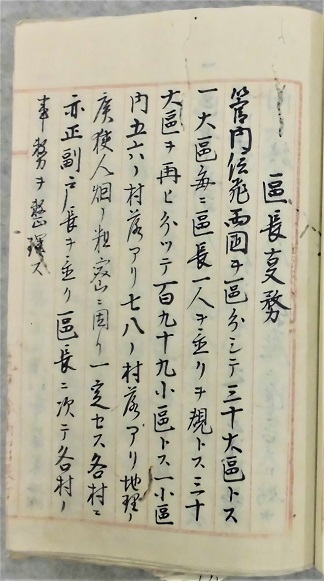 區長叓務
管内信飛両国ヲ區分シテ三十大區トス
一大區毎ニ區長一人ヲ置クヲ規トス三十
大區ヲ再ヒ分ツテ百九十九小區トス一小區
内五六ノ村落アリ七八ノ村落アリ地理ノ
廣狭人烟ノ粗密ニ因リ一定セス各村ニ
亦正副戸長ヲ置ク區長ニ次テ各村ノ
事務ヲ整理ス